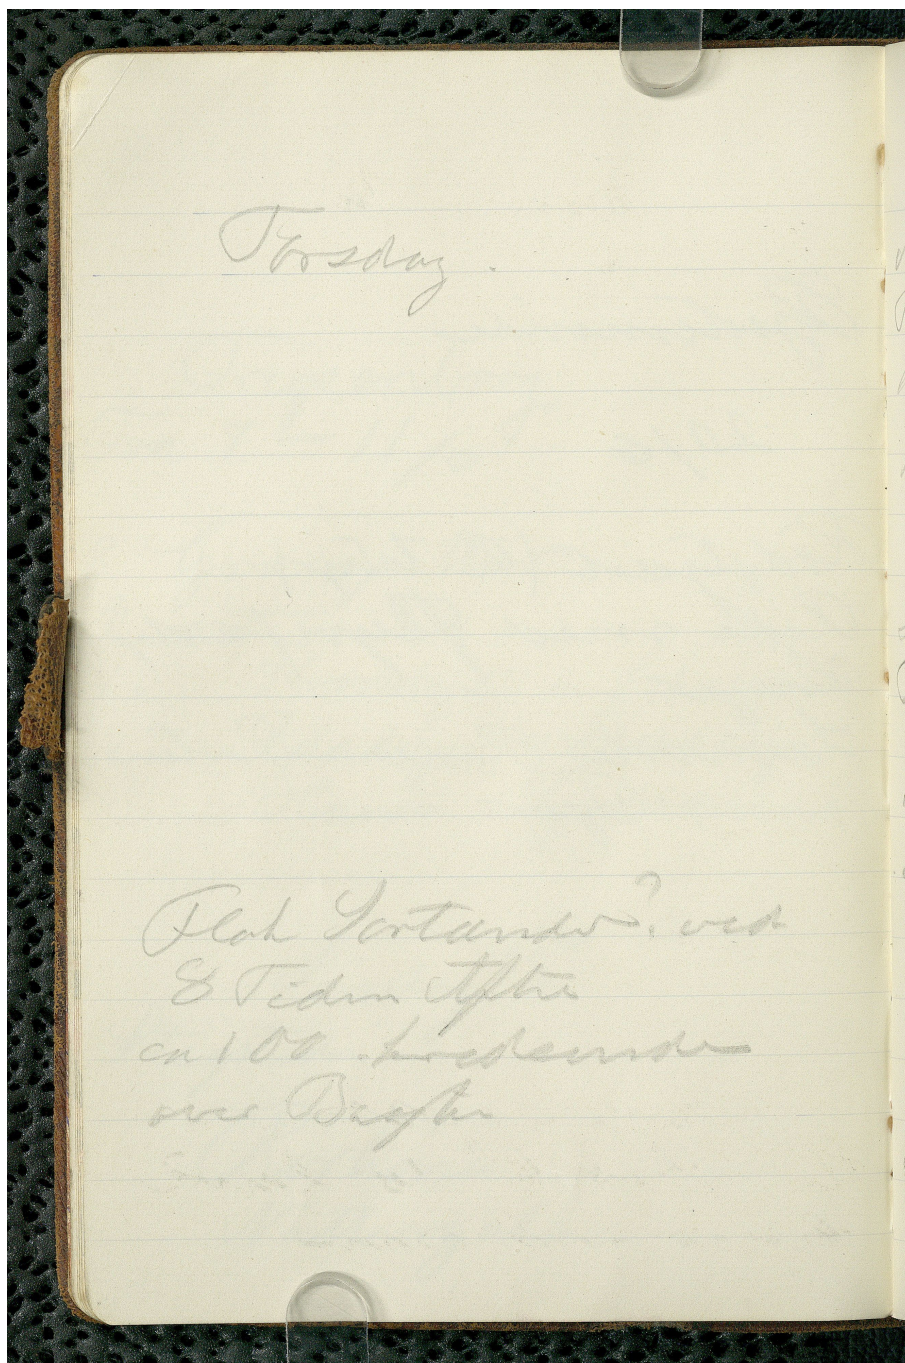 Torsdag.
Flok Sortænder? ved
8 Tiden Aften
ca 100. trækkende
over Bugten